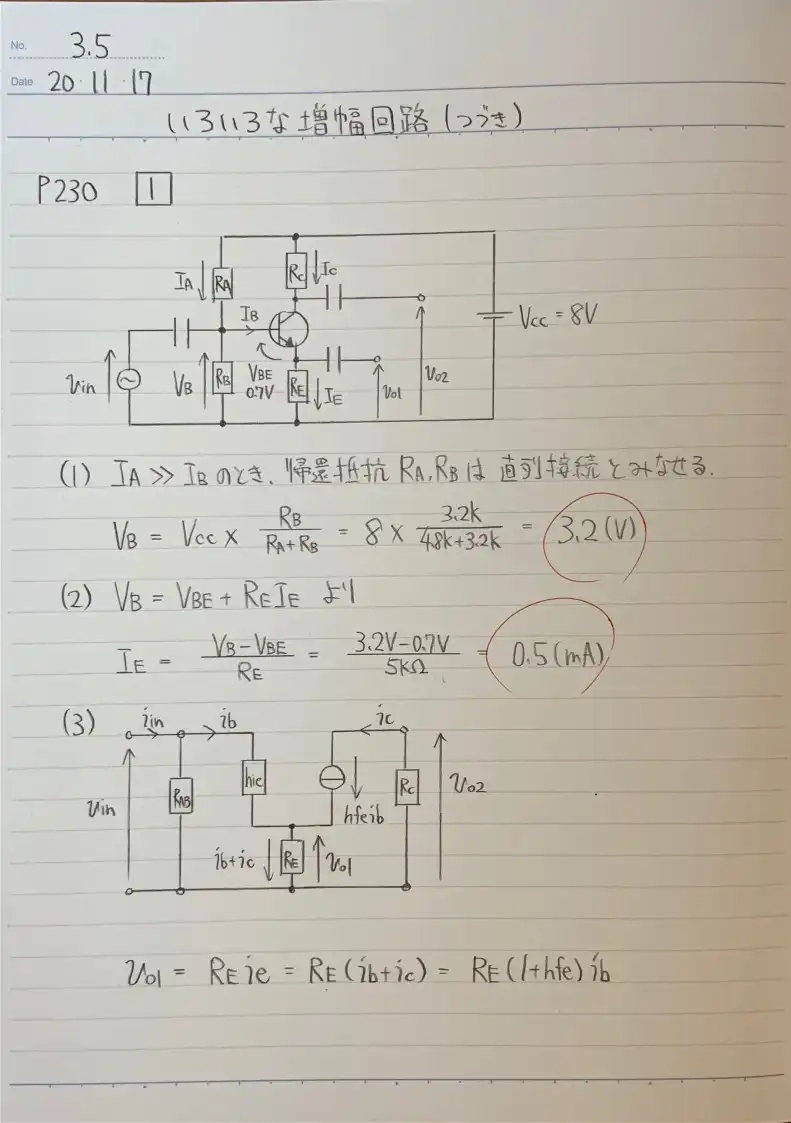 No. 3.5
Date 20・11・17
いろいろな増幅回路(つづき)
P230 1
IA RA RC IC
IB
VCC = 8V
vin VB RB VBE 0.7V RE IE vo1 vo2
(1) IA ≫ IB のとき、帰還抵抗 RA, RB は 直列接続とみなせる.
VB = Vcc × RB/(RA+RB) = 8 × 3.2k/(4.8k+3.2k) = 3.2(V)
(2) VB = VBE + REIE より
IE = (VB−VBE)/RE = (3.2V−0.7V)/5kΩ = 0.5(mA)
(3) iin ib ic
vin RAB hie hfeib RC vo2
ib+ic RE vo1
vo1 = RE ie = RE(ib+ic) = RE(1+hfe)ib